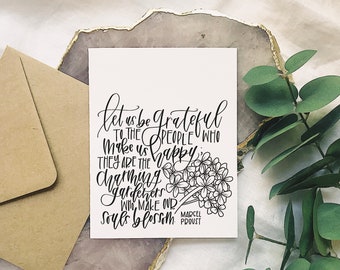 let us be grateful
TO THE PEOPLE WHO
make us happy
THEY ARE THE
charming
gardeners
WHO MAKE OUR
souls blossom
MARCEL
PROUST